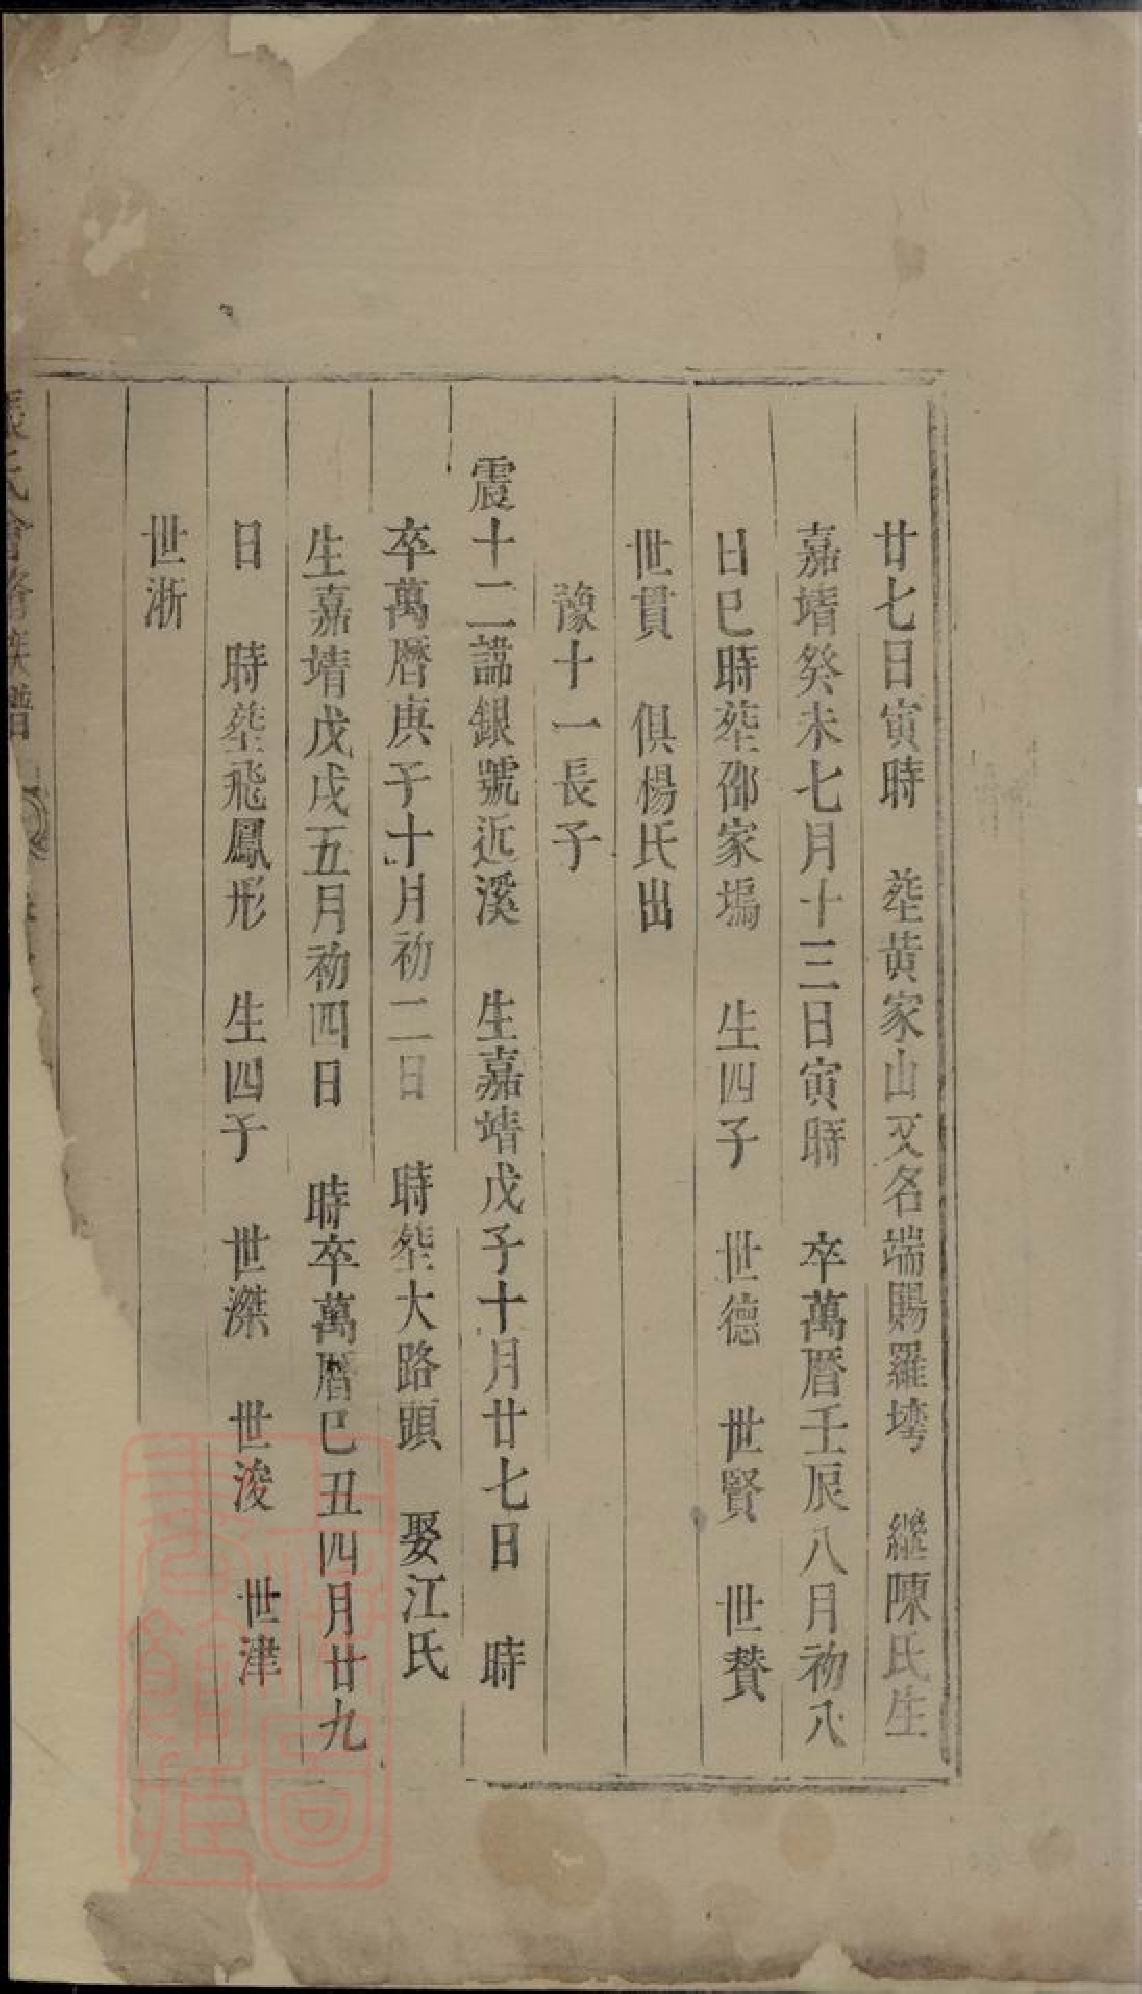 廿七日寅時　塟黃家山又名端賜羅塆　繼陳氏生
嘉靖癸未七月十三日寅時　卒萬曆壬辰八月初八
日巳時塟邵家塢　生四子　世德　世賢　世賛
世貫　俱楊氏出
豫十一長子
震十二諱銀號近溪　生嘉靖戊子十月廿七日　時
卒萬曆庚子十月初二日　時塟大路頭　娶江氏
生嘉靖戊戌五月初四日　時卒萬曆巳丑四月廿九
日　時塟飛鳳形　生四子　世滐　世浚　世津
世浙
張氏會脩族譜